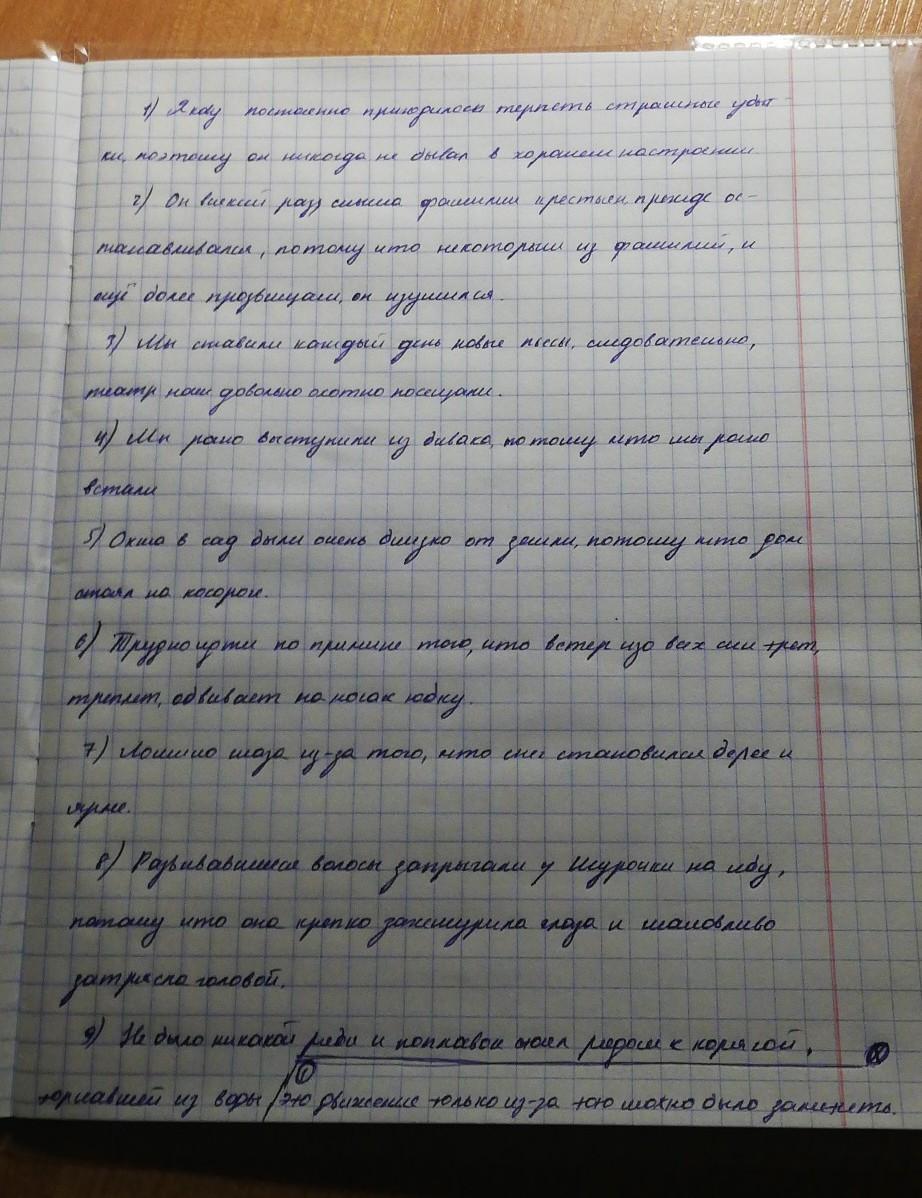 1) Якову постоянно приходилось терпеть страшные убыт-
ки, поэтому он никогда не бывал в хорошем настроении
2) Он всякий раз, слыша фамилии крестьян, прежде ос-
танавливался, потому что некоторым из фамилий, и
ещё более прозвищам, он изумился.
3) Мы ставили каждый день новые пьесы, следовательно,
театр наш довольно охотно посещали.
4) Мы рано выступили из бивака, потому что мы рано
встали
5) Окна в сад были очень близко от земли, потому что дом
стоял на косогоре.
6) Трудно идти по причине того, что ветер изо всех сил +рет,
треплет, обвивает на ногах юбку.
7) Ломило глаза из-за того, что снег становился белее и
ярче.
8) Развивавшиеся волосы запрыгали у Шурочки на лбу,
потому что она крепко зажмурила глаза и шаловливо
затрясла головой.
9) Не было никакой ряби и поплавок стоял рядом с корягой,
торчавшей из воды его движение только из-за того можно было заметить.